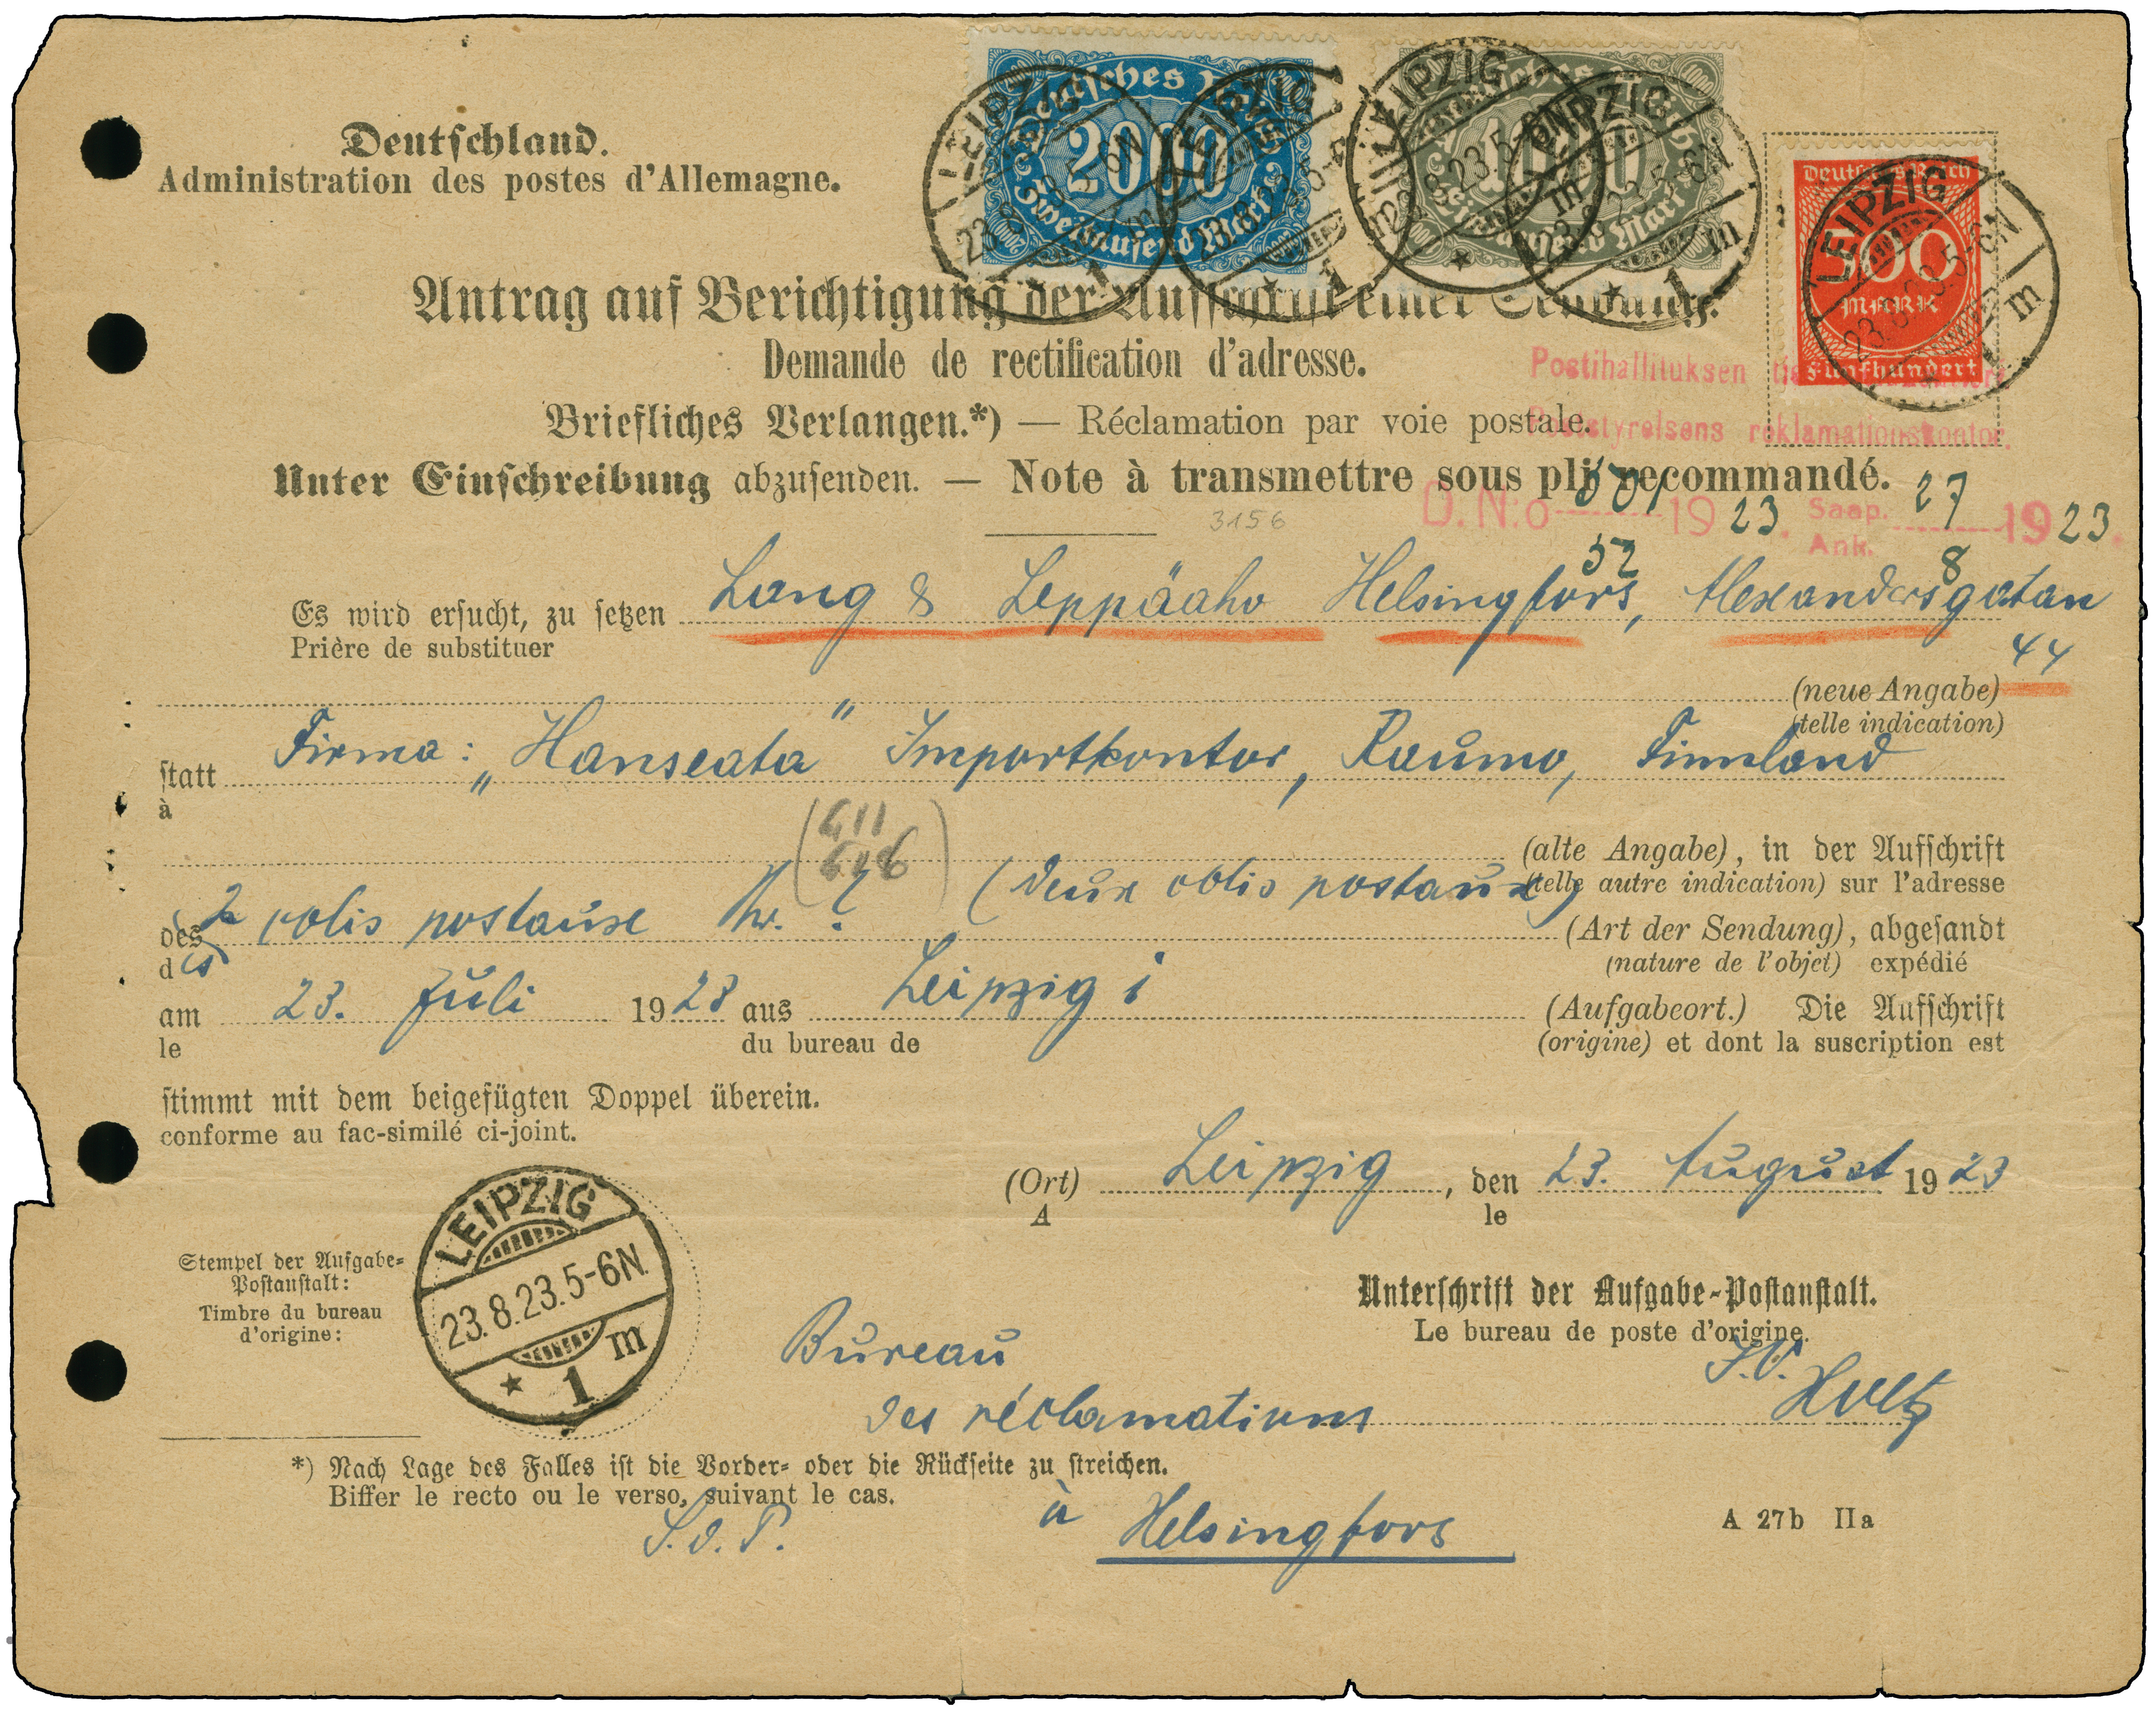 Deutschland.
Administration des postes d'Allemagne.
Deutsches Reich
2000
Zweitausend Mark
1000
Eintausend Mark
Deutsches Reich
500
MARK
Fünfhundert
LEIPZIG
23.8.23.5-6N
1 m
Antrag auf Berichtigung der Aufschrift einer Sendung.
Demande de rectification d'adresse.
Postihallituksen
Briefliches Verlangen.*) — Réclamation par voie postale.
Poststyrelsens reklamationskontor.
Unter Einschreibung abzusenden. — Note à transmettre sous pli recommandé.
3156
D. N:o 1923. Saap. Ank. 27 8 1923.
52
Es wird ersucht, zu setzen Lang & Leppäaho Helsingfors, Alexandersgatan
Prière de substituer
44
(neue Angabe)
(telle indication)
statt Firma: „Hanseata" Importkontor, Raumo, Finnland
à
(alte Angabe), in der Aufschrift
(telle autre indication) sur l'adresse
des 2 colis postaux Nr. ? (deux colis postaux) (Art der Sendung), abgesandt
des (nature de l'objet) expédié
am 23. Juli 1923 aus Leipzig 1 (Aufgabeort.) Die Aufschrift
le du bureau de (origine) et dont la suscription est
stimmt mit dem beigefügten Doppel überein.
conforme au fac-similé ci-joint.
(Ort) Leipzig, den 23. August 1923
A le
Stempel der Aufgabe-
Postanstalt:
Timbre du bureau
d'origine:
LEIPZIG
23.8.23.5-6N.
* 1 m
Unterschrift der Aufgabe-Postanstalt.
Le bureau de poste d'origine.
Bureau
des réclamations
à Helsingfors
*) Nach Lage des Falles ist die Vorder- oder die Rückseite zu streichen.
Biffer le recto ou le verso, suivant le cas.
A 27b IIa